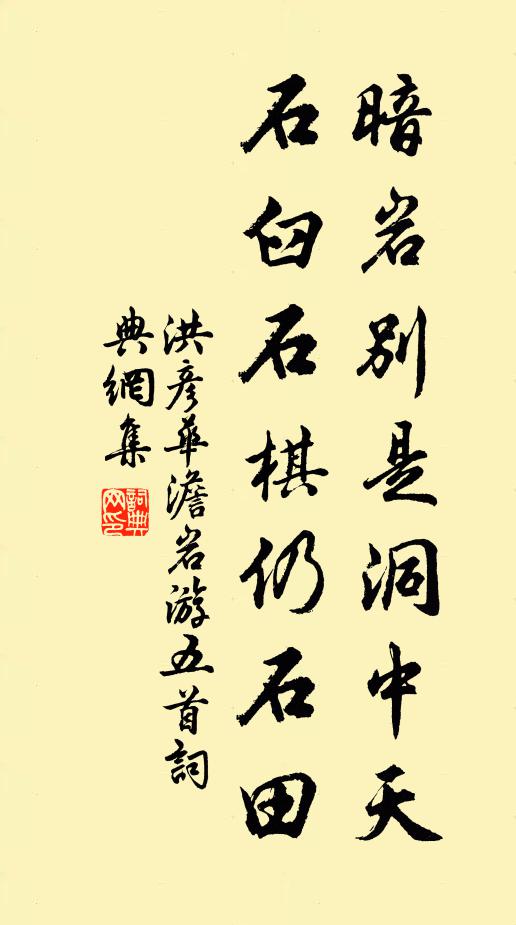 暗岩别是洞中天
石臼石棋仍石田
洪彥華澹岩游五首詞
典網集
詞典
网印